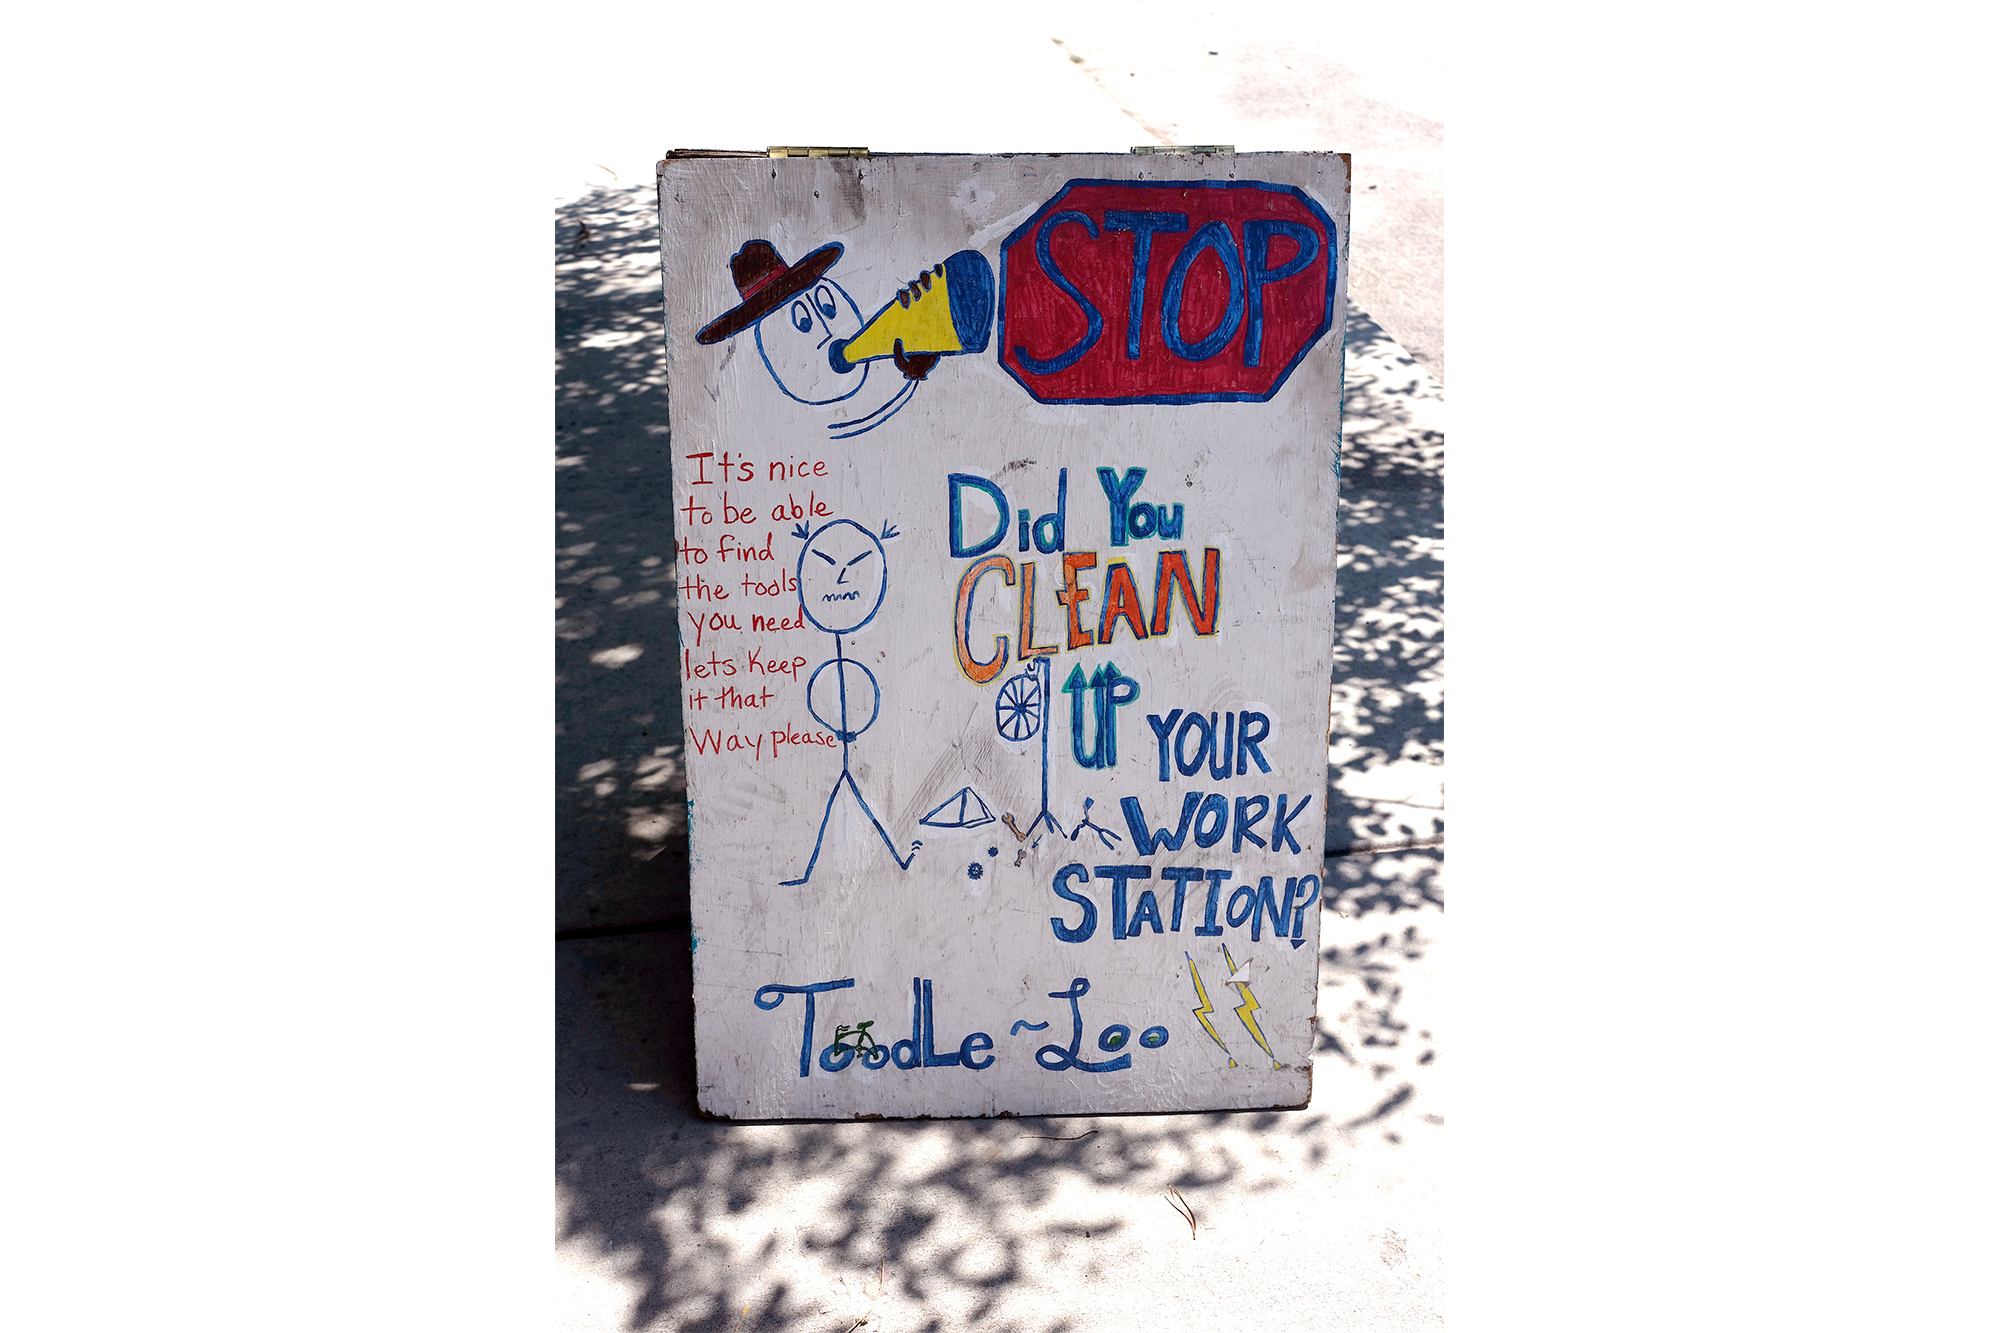 STOP
It's nice
to be able
to find
the tools
you need
lets Keep
it that
Way please
Did You
CLEAN
UP
YOUR
WORK
STATION?
ToodLe~Loo